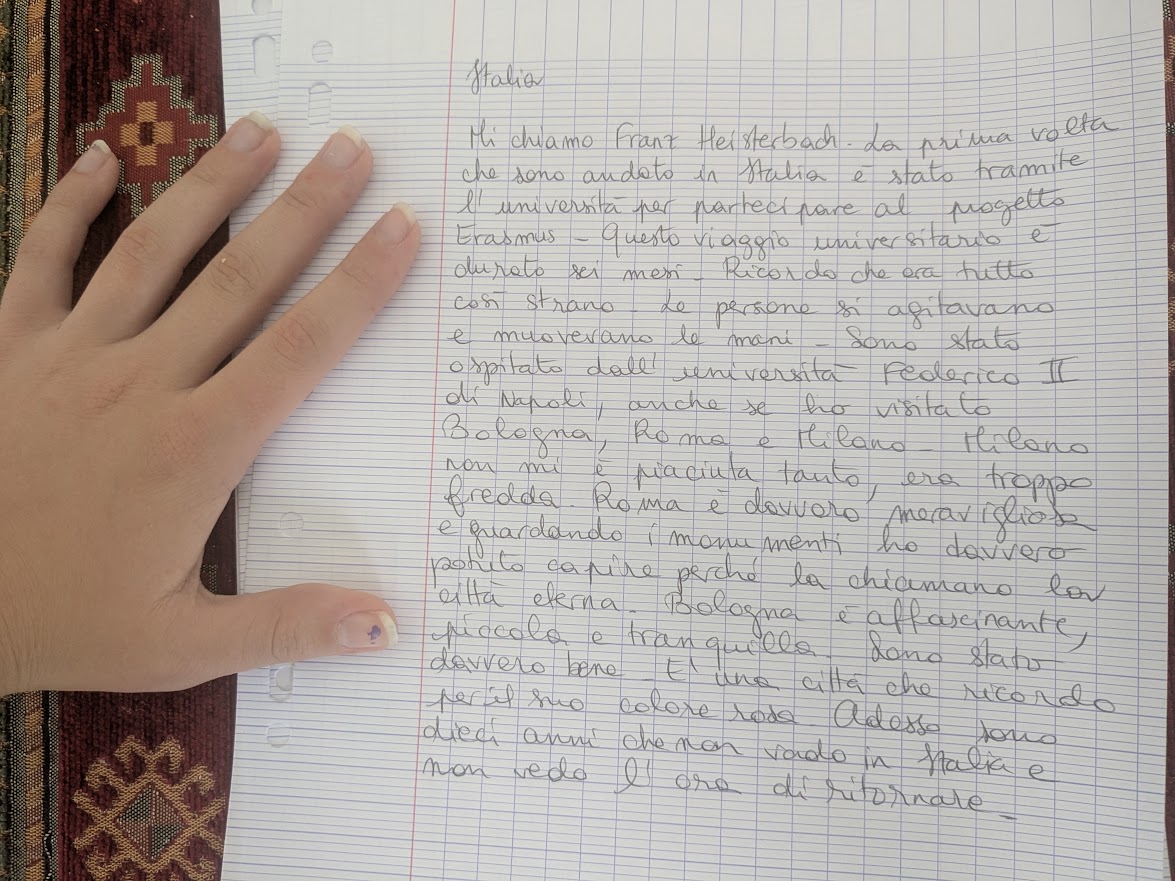 Italia
Mi chiamo Franz Heisterbach. La prima volta
che sono andato in Italia è stato tramite
l'università per partecipare al progetto
Erasmus. Questo viaggio universitario è
durato sei mesi. Ricordo che era tutto
così strano. Le persone si agitavano
e muovevano le mani. Sono stato
ospitato dall'università Federico II
di Napoli, anche se ho visitato
Bologna, Roma e Milano. Milano
non mi è piaciuta tanto, era troppo
fredda. Roma è davvero meravigliosa
e guardando i monumenti ho davvero
potuto capire perché la chiamano la
città eterna. Bologna è affascinante,
piccola e tranquilla. Sono stato
davvero bene. E' una città che ricordo
per il suo colore rosa. Adesso sono
dieci anni che non vado in Italia e
non vedo l'ora di ritornare.